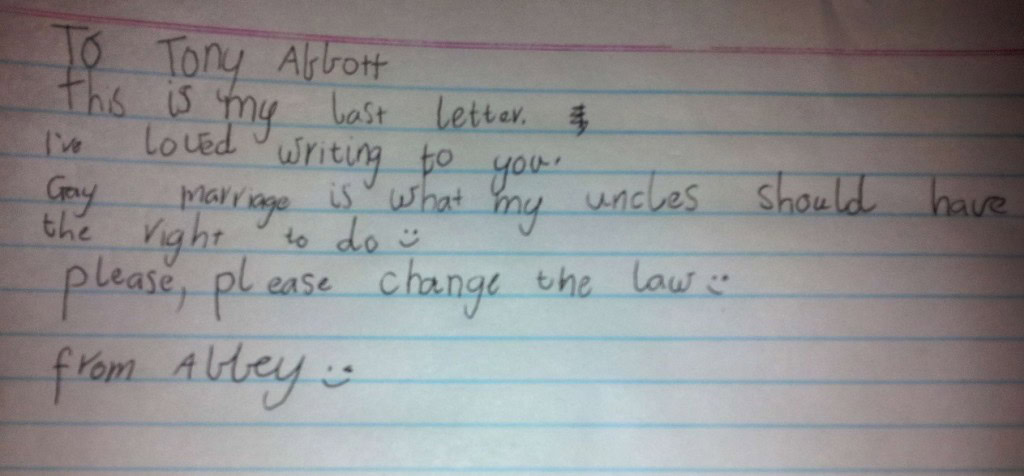 To Tony Abbott
this is my last letter.
I've loved writing to you.
Gay marriage is what my uncles should have
the right to do :)
please, please change the law :)
from Abbey :)